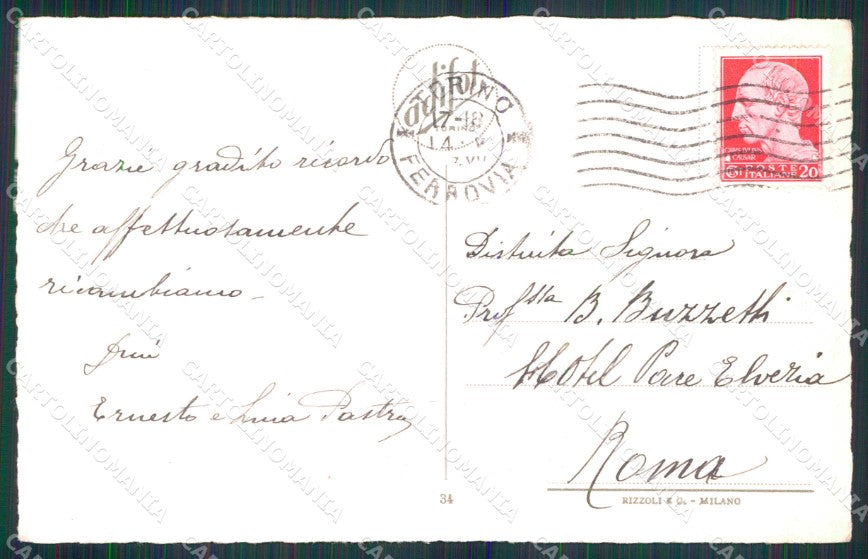 Grazie gradito ricordo
che affettuosamente
ricambiamo -
Ernesto e Livia Pastra
TORINO
17-18
TORINO
14
FERROVIA
CAIVS IVLIVS
CAESAR
POSTE
ITALIANE 20
Distinta Signora
Prof.ssa B. Buzzetti
Hotel Pace Elvezia
Roma
34
RIZZOLI & C. - MILANO
CARTOLINOMANIA